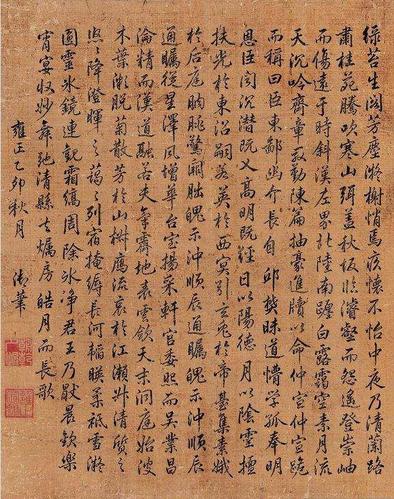 綠苔生閣芳塵凝榭悄焉疚懷不怡中夜乃清蘭路
肅桂苑騰吹寒山弭蓋秋坂臨濬壑而怨遙登崇岫
而傷遠于時斜漢左界北陸南躔白露靄空素月流
天沉吟齊章殷勤陳篇抽毫進牘以命仲宣仲宣跪
而稱曰臣東鄙幽介長自邱樊昧道懵學孤奉明
恩臣聞沉潛既義高明既經日以陽德月以陰靈擅
扶光於東沼嗣若英於西冥引玄兔於帝臺集素娥
於后庭朒朓驚闕朏魄示沖順辰通矚魄示沖順辰
通矚從星澤風增華台室揚采軒宮委照而吳業昌
淪精而漢道融若夫氣霽地表雲斂天末洞庭始波
木葉微脫菊散芳於山椒雁流哀於江瀨升清質之
悠〻降澄暉之藹〻列宿掩縟長河韜映柔祇雪凝
圓靈水鏡連觀霜縞周除冰凈君王乃厭晨歡樂
宵宴收妙舞弛清縣去燭房皓月而長歌
雍正乙卯秋月 御筆